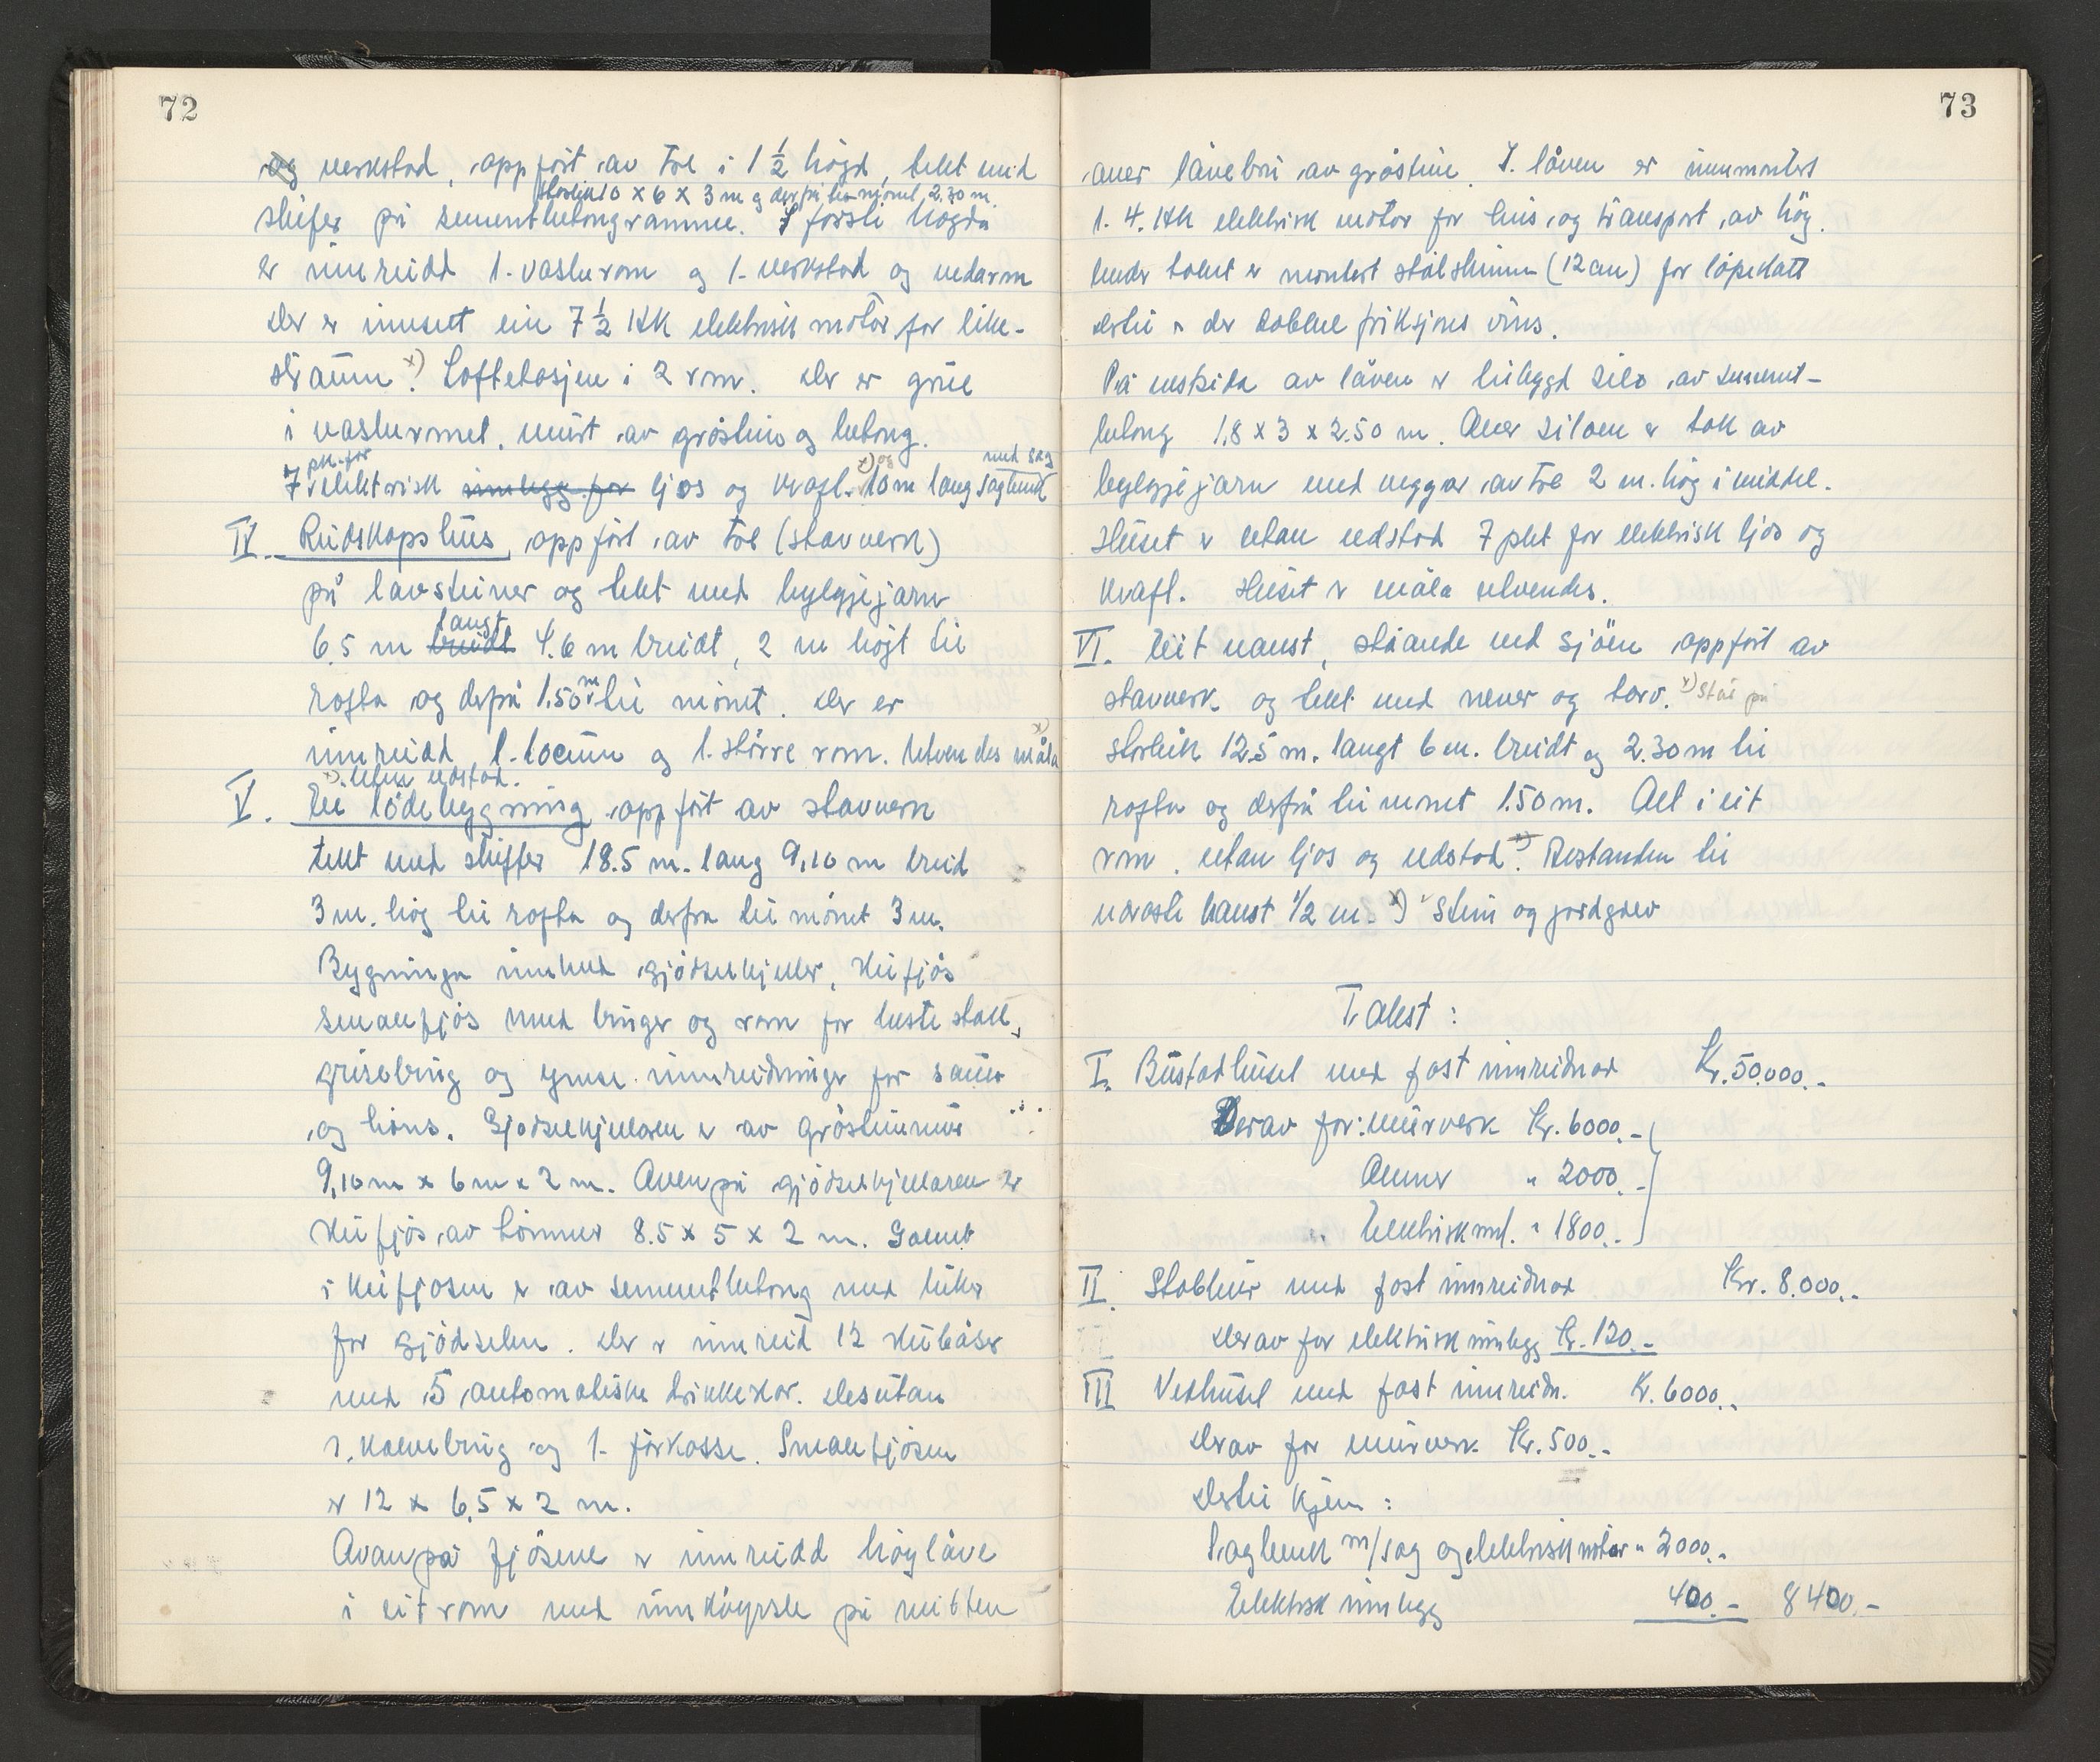 72
og verkstad, oppført av tre i 1 1/2 høgd, tekt med
storleik 10 x 6 x 3 m og derfrå til mønet 2,30 m.
skifer på sementbetongramme. I fyrste høgda
er innreidd 1. vaskerom og 1. verkstad og vedarom
Der er innsett ein 7 1/2 HK elektrisk motor for like-
straum x). Loftetasjen i 2 rom. Der er grue
i vaskeromet, murt av gråstein og betong.
pkt. for x) og med sag
7 elektrisk innlegg for ljos og kraft. 10 m lang sagbenk
IV. Reidskapshus, oppført av tre (stavverk)
på lavsteinar og tekt med bylgjejarn
langt
6,5 m breidt 4.6 m breidt, 2 m høgt til
m
rofta og derfrå 1.50 til mønet. Der er
x)
innreidd 1. locum og 1. større rom. Utvendes måla
x) Utan eldstad.
V. Ei lødebygning oppført av stavverk
tekt med skiffer 18.5 m. lang 9,10 m breid
3 m. høg til rofta og derfra til mønet 3 m.
Bygninga inneheld gjødselkjeller, kufjøs
smalefjøs med binger og rom for hestestall,
grisebing og ymse innreidninger for sauer
og høns. Gjødselkjellaren er av gråsteinsmur
9,10 m x 6 m x 2 m. Ovenpå gjødselkjellaren er
kufjøs av tømmer 8.5 x 5 x 2 m. Golvet
i kufjosen er av sementbetong med luker
for gjødselen. Der er innreid 12 kubåser
med 5 automatiske drikkekar. Desutan
1. kalvebing og 1. fôrkasse. Smalefjøsen
er 12 x 6,5 x 2 m.
Ovanpå fjøsene er innreidd høylåve
i eit rom med innkøyrsle på midten
73
over låvebru av gråstein. I låven er innmontert
1. 4. HK elektrisk motor for heis og transport av høy.
Under taket er montert stålskinne (12 cm) for løpekatt
dertil er der dobbel friksjons vins.
På vestsida av låven er tilbygd silo av sement-
betong 1,8 x 3 x 2.50 m. Over siloen er tak av
bylgjejarn med veggar av tre 2 m. høg i middel.
Huset er utan eldstad 7 pkt for elektrisk ljos og
kraft. Huset er måla utvendes.
VI. Eit naust,ståande ved sjøen oppført av
stavverk og tekt med never og torv. x) står på
storleik 12.5 m. langt 6 m. breidt og 2.30 m til
rofta og derfrå til mønet 1.50 m. Alt i eit
rom. utan ljos og eldstad x). Avstanden til
næraste naust 1/2 m. x) Stein og jordgolv
Takst:
I. Bustadhuset med fast innreidnad Kr. 50.000.-
Derav for: murverk Kr. 6000.-
Omner " 2000.-
Elektrisk innl. " 1800.-
II. Stabbur med fast innreidnad Kr. 8.000.-
Derav for elektrisk innlegg Kr. 120.-
III Vedhuset med fast innreidn. Kr. 6000.-
Derav for murverk Kr. 500.-
Dertil kjem:
Sagbenk m/sag og elektrisk motor " 2000.-
Elektrisk innlegg 400.- 8400.-